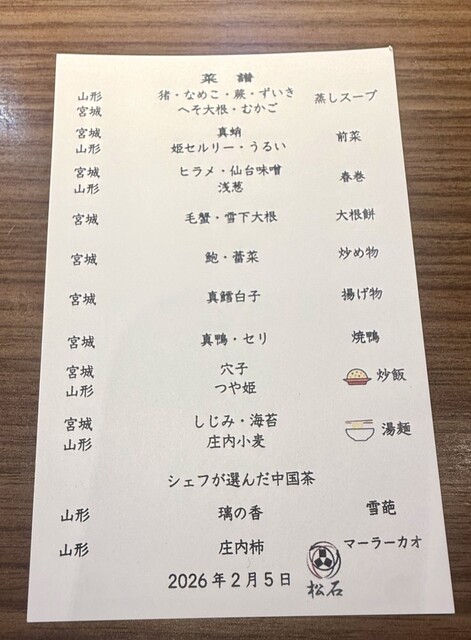 菜 譜
山形 猪・なめこ・蕨・ずいき 蒸しスープ
宮城 へそ大根・むかご
宮城 真蛸 前菜
山形 姫セルリー・うるい
宮城 ヒラメ・仙台味噌 春巻
山形 浅葱
宮城 毛蟹・雪下大根 大根餅
宮城 鮑・蕾菜 炒め物
宮城 真鱈白子 揚げ物
宮城 真鴨・セリ 焼鴨
宮城 穴子 炒飯
山形 つや姫
宮城 しじみ・海苔 湯麺
山形 庄内小麦
シェフが選んだ中国茶
山形 璃の香 雪葩
山形 庄内柿 マーラーカオ
2026年2月5日 松石